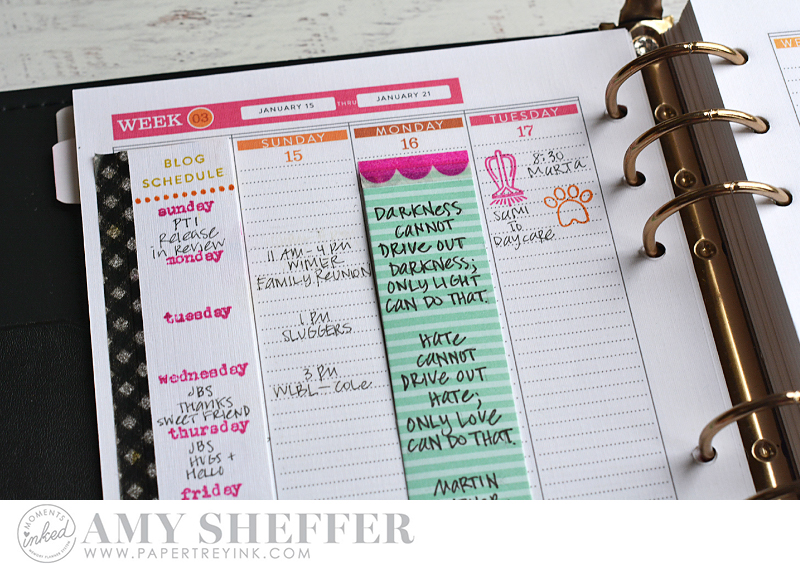 WEEK 03 JANUARY 15 THRU JANUARY 21
BLOG
SCHEDULE
sunday
PTI
Release
in Review
monday
tuesday
wednesday
JBS
THANKS
SWEET FRIEND
thursday
JBS
HUGS +
HELLO
friday
SUNDAY
15
11 AM - 4 PM
WIMER
FAMILY REUNION
1 PM
SLUGGERS
3 PM
WLBL - COLE
MONDAY
16
DARKNESS
CANNOT
DRIVE OUT
DARKNESS;
ONLY LIGHT
CAN DO THAT.
HATE
CANNOT
DRIVE OUT
HATE;
ONLY LOVE
CAN DO THAT.
MARTIN
TUESDAY
17
8:30
MARTA
SAMI
TO
DAYCARE
MOMENTS
inked
AMY SHEFFER
WWW.PAPERTREYINK.COM